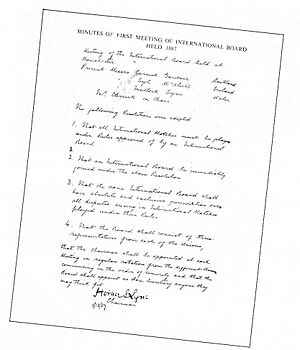 MINUTES OF FIRST MEETING OF INTERNATIONAL BOARD
HELD 1887
Meeting of the International Board held at
Manchester
Present Messrs Carrick Gardner Scotland
Lyle McAlister Ireland
Mullock Lyne Wales
Mr. Carrick in Chair
The following Resolutions were adopted
1. That all International Matches must be played
under Rules approved of by an International
Board
2. That an International Board be immediately
formed under the above Resolution
3. That the same International Board shall
have absolute and exclusive jurisdiction over
all disputes arising in International Matches
played under their Rules
4. That the Board shall consist of three
representatives from each of the Unions,
that the Chairman shall be appointed at each
Meeting in regular rotation from the
commencing in the order of seniority and that the
Board shall appoint as Hon Secretary anyone they
may think fit
Horace S Lyne
Chairman